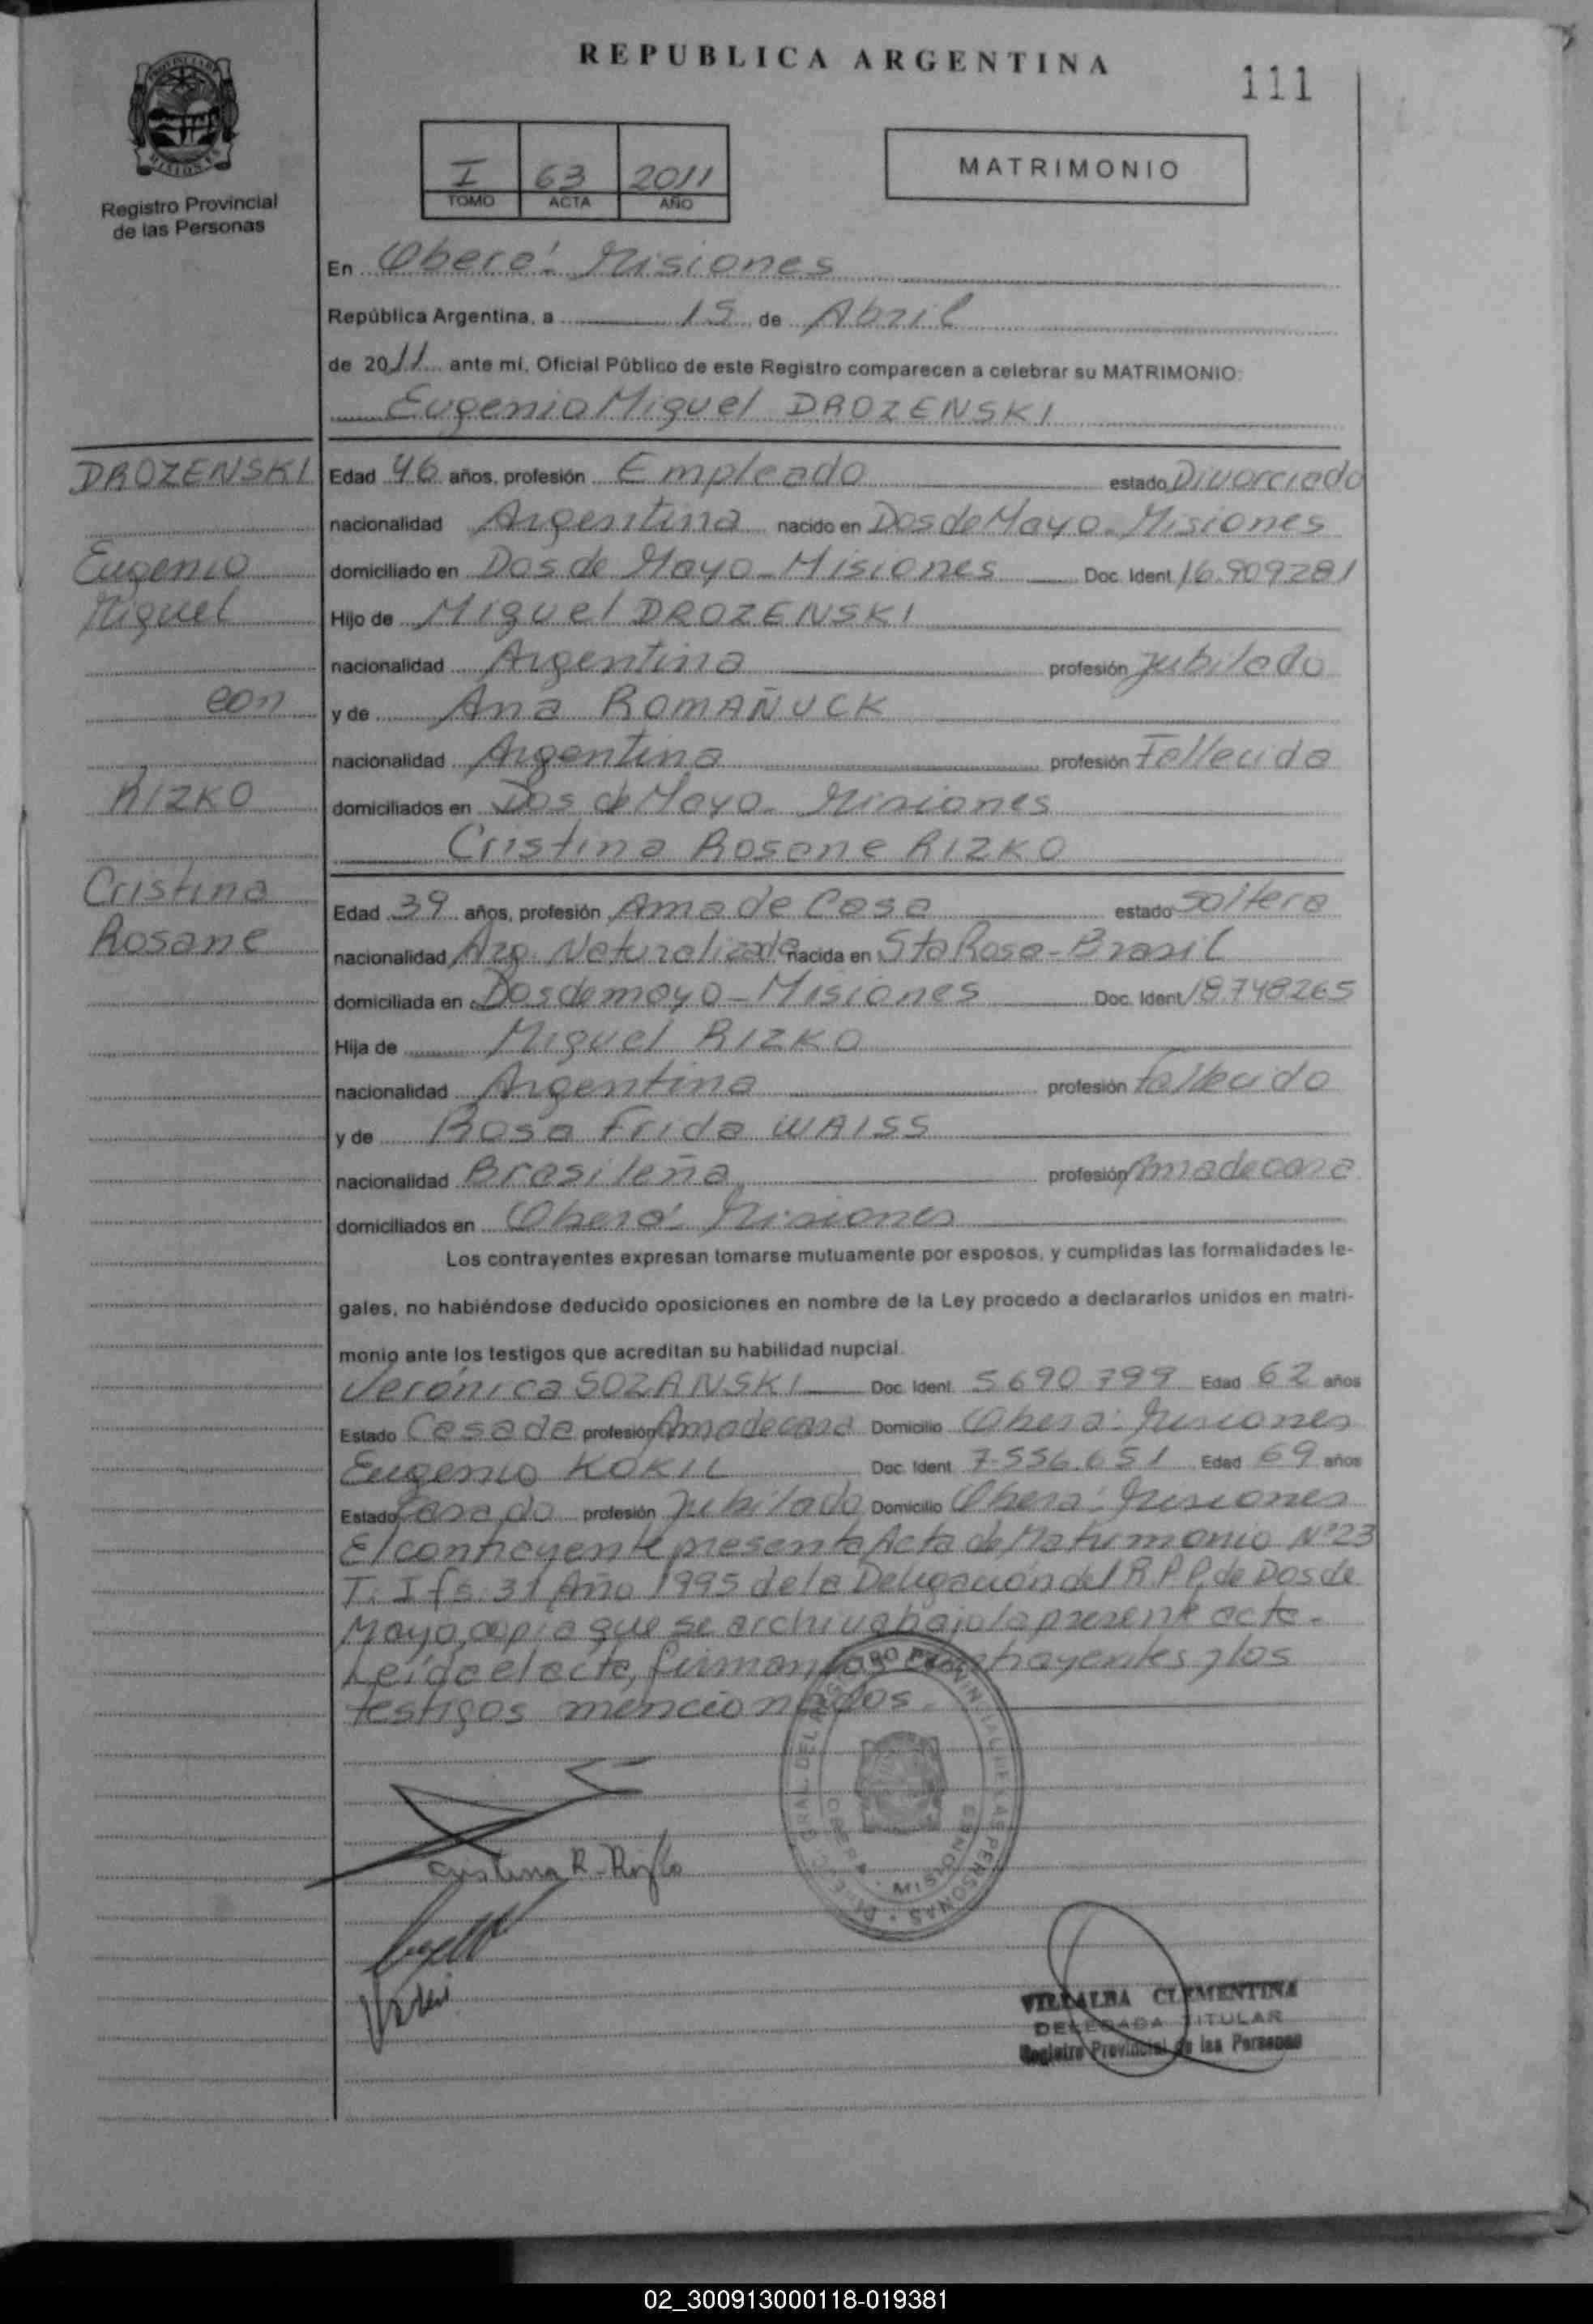 REPUBLICA ARGENTINA
111
I 63 2011
TOMO ACTA AÑO
MATRIMONIO
Registro Provincial
de las Personas
En Oberá - Misiones
República Argentina, a 15 de Abril
de 2011 ante mí, Oficial Público de este Registro comparecen a celebrar su MATRIMONIO:
Eugenio Miguel DROZENSKI
DROZENSKI
Eugenio
Miguel
con
RIZKO
Cristina
Rosane
Edad 46 años, profesión Empleado estado Divorciado
nacionalidad Argentina nacido en Dos de Mayo - Misiones
domiciliado en Dos de Mayo - Misiones Doc. Ident. 16.909281
Hijo de Miguel DROZENSKI
nacionalidad Argentina profesión Jubilado
y de Ana ROMAÑUCK
nacionalidad Argentina profesión Fallecida
domiciliados en Dos de Mayo - Misiones
Cristina Rosane RIZKO
Edad 39 años, profesión Ama de Casa estado Soltera
nacionalidad Arg. Naturalizada nacida en Sta Rosa - Brasil
domiciliada en Dos de mayo - Misiones Doc. Ident. 18.748265
Hija de Miguel RIZKO
nacionalidad Argentina profesión Fallecido
y de Rosa Frida WAISS
nacionalidad Brasileña profesión Ama de casa
domiciliados en Oberá - Misiones
Los contrayentes expresan tomarse mutuamente por esposos, y cumplidas las formalidades le-
gales, no habiéndose deducido oposiciones en nombre de la Ley procedo a declararlos unidos en matri-
monio ante los testigos que acreditan su habilidad nupcial.
Verónica SOZANSKI Doc. Ident. 5690799 Edad 62 años
Estado Casada profesión Ama de casa Domicilio Oberá - Misiones
Eugenio KOKIL Doc. Ident. 7.556.651 Edad 69 años
Estado Casado profesión Jubilado Domicilio Oberá - Misiones
El contrayente presenta Acta de Matrimonio Nº 23
T. I fs. 31 Año 1995 de la Delegación del R.P.P. de Dos de
Mayo, copia que se archiva bajo la presente acta.
Leída el acta, firman los contrayentes y los
testigos mencionados.
Cristina R. Rizko
VILLALBA CLEMENTINA
DELEGADA TITULAR
Registro Provincial de las Personas
02_300913000118-019381